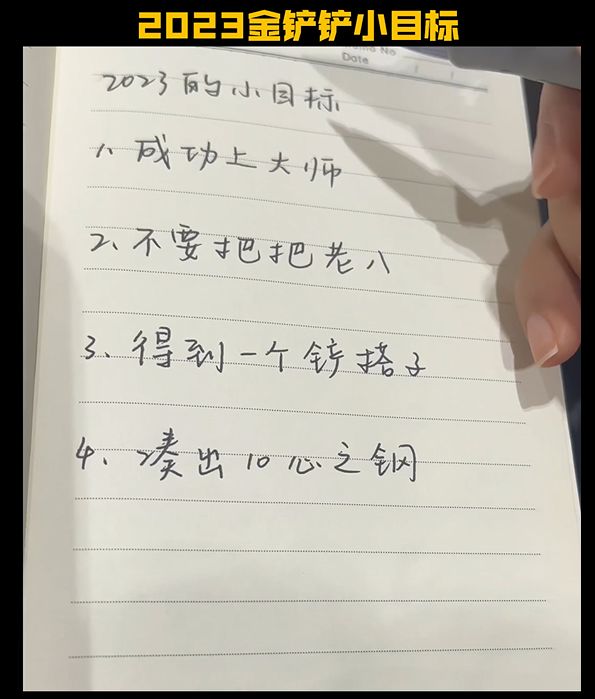 2023金铲铲小目标
No
Date
2023的小目标
1、成功上大师
2、不要把把老八
3、得到一个铲搭子
4、凑出10心之钢